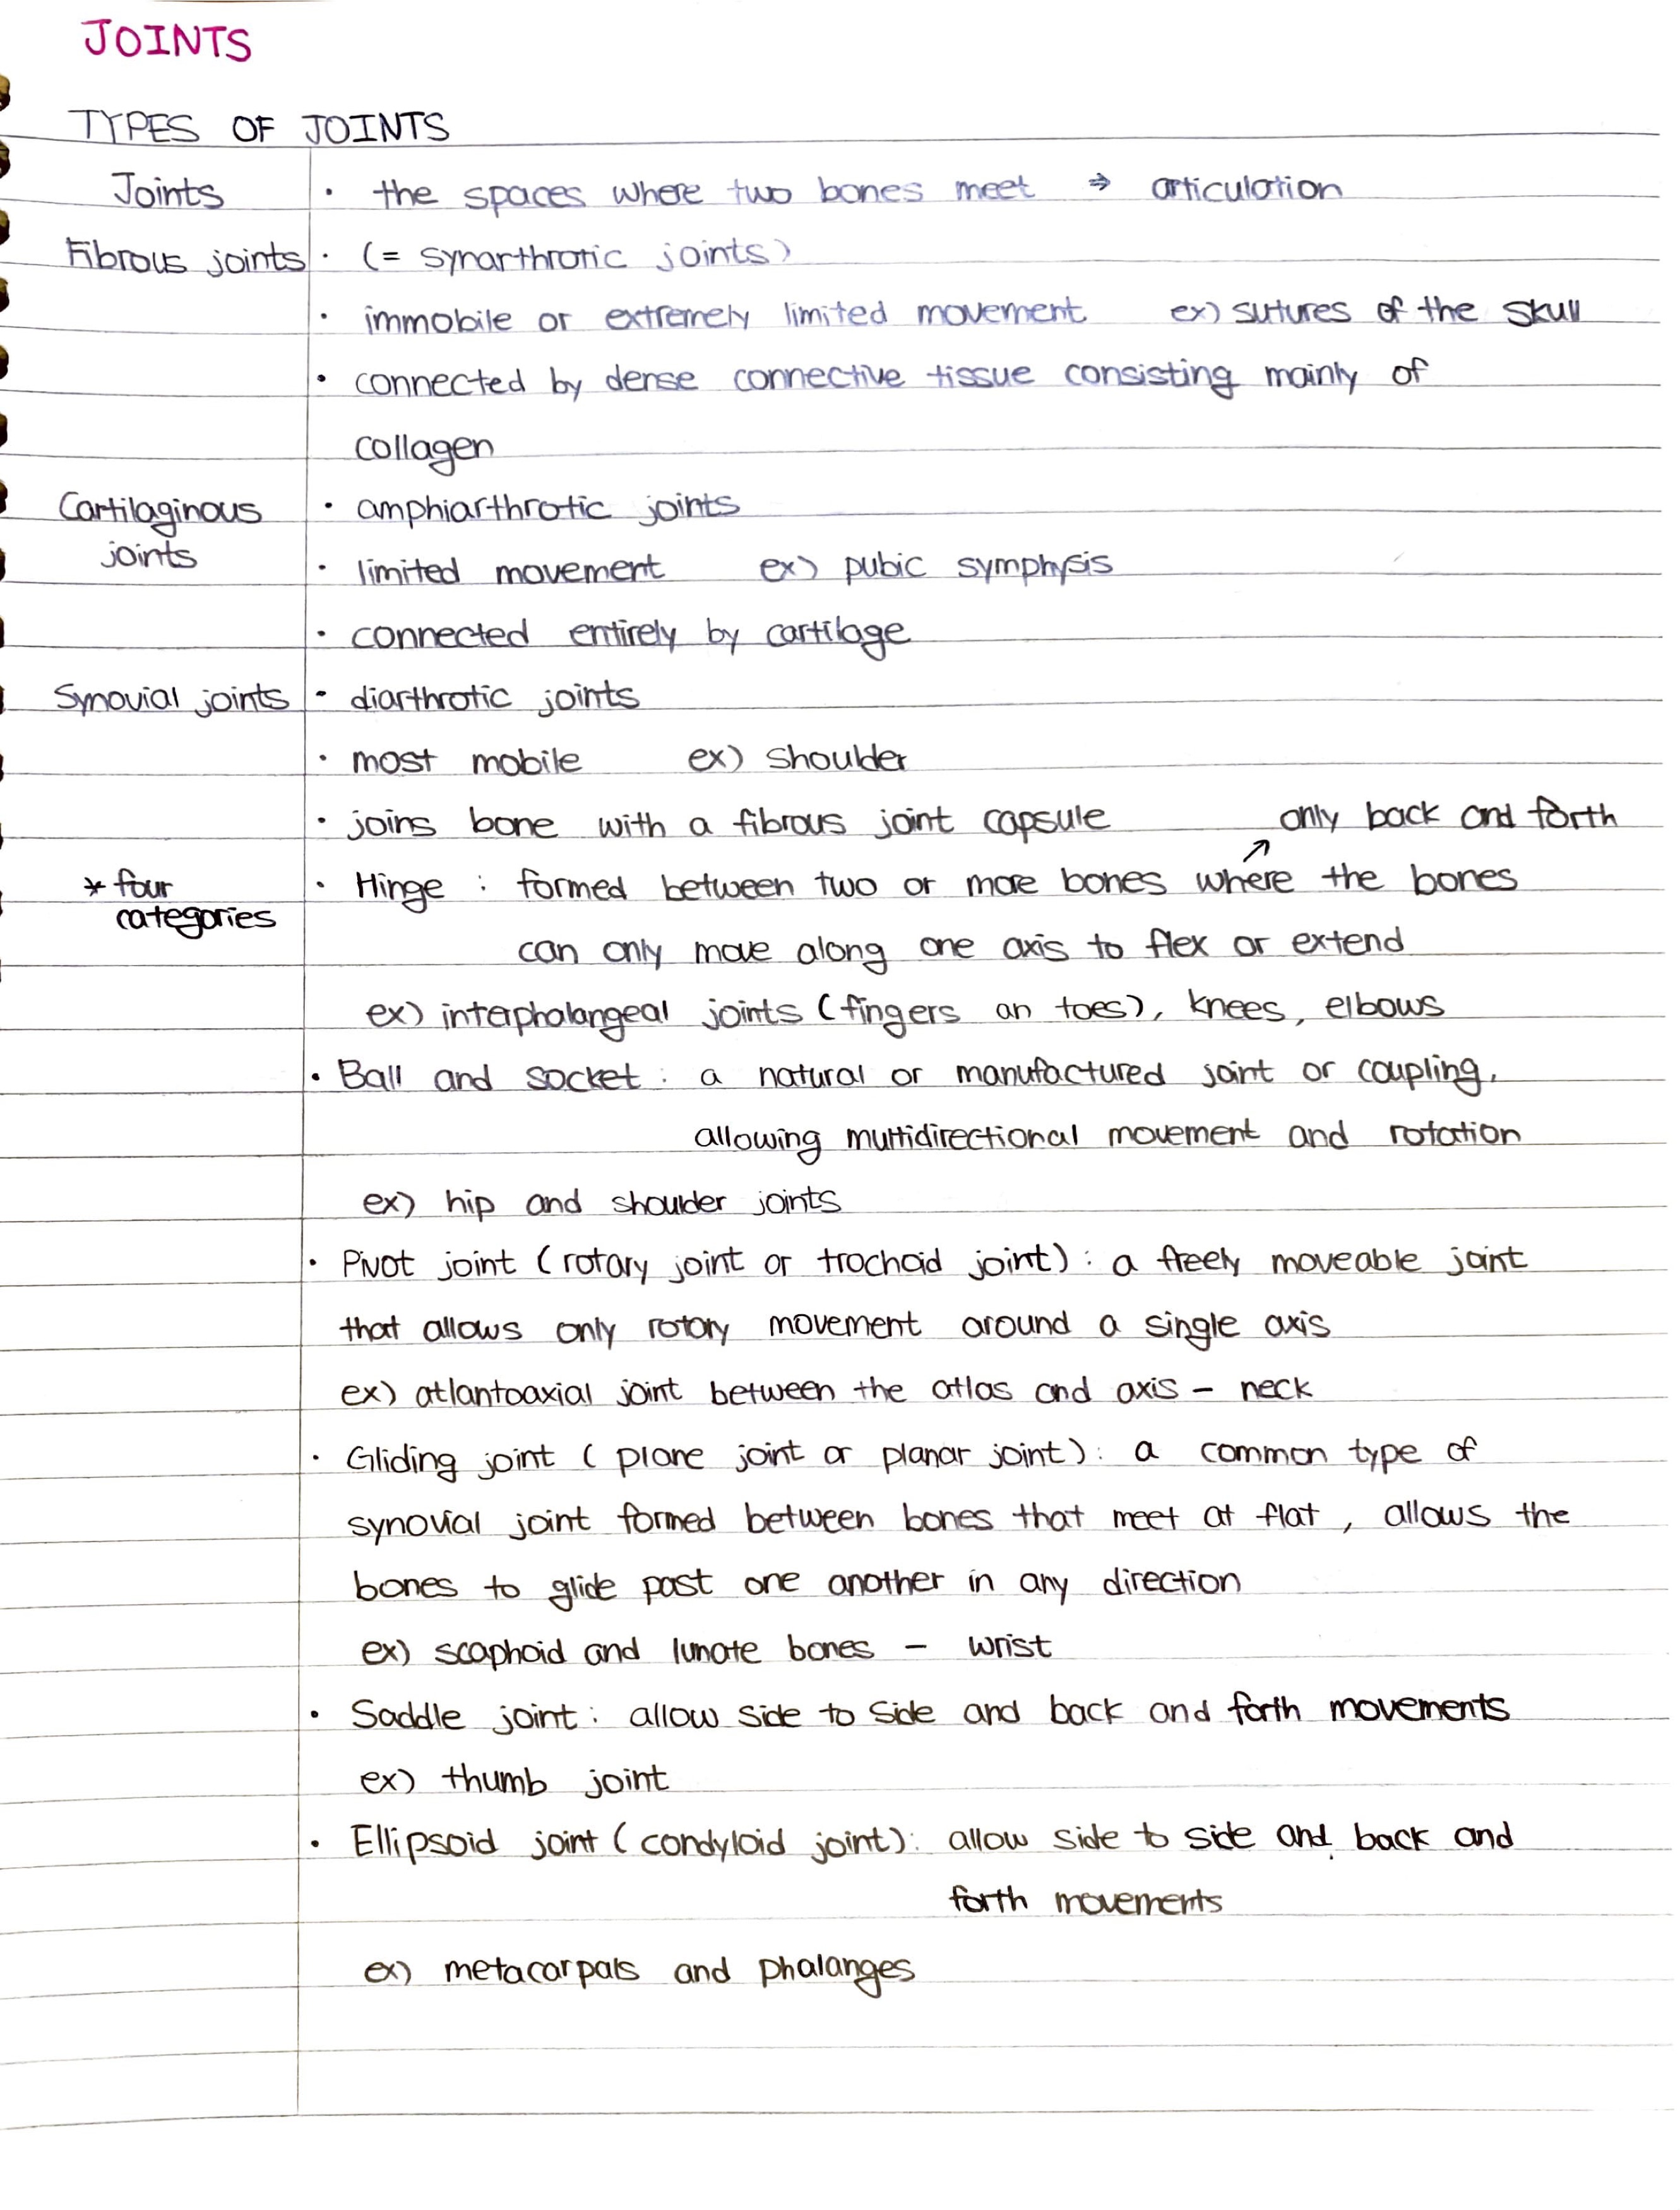 JOINTS
TYPES OF JOINTS
Joints · the spaces where two bones meet ⇒ articulation
Fibrous joints · (= synarthrotic joints)
· immobile or extremely limited movement ex) sutures of the skull
· connected by dense connective tissue consisting mainly of
collagen
Cartilaginous · amphiarthrotic joints
joints
· limited movement ex) pubic symphysis
· connected entirely by cartilage
Synovial joints · diarthrotic joints
· most mobile ex) shoulder
· joins bone with a fibrous joint capsule only back and forth
↗
* four · Hinge : formed between two or more bones where the bones
categories
can only move along one axis to flex or extend
ex) interphalangeal joints (fingers an toes), knees, elbows
· Ball and socket : a natural or manufactured joint or coupling,
allowing multidirectional movement and rotation
ex) hip and shoulder joints
· Pivot joint (rotary joint or trochoid joint) : a freely moveable joint
that allows only rotory movement around a single axis
ex) atlantoaxial joint between the atlas and axis - neck
· Gliding joint ( plane joint or planar joint) : a common type of
synovial joint formed between bones that meet at flat , allows the
bones to glide past one another in any direction
ex) scaphoid and lunate bones - wrist
· Saddle joint : allow side to side and back and forth movements
ex) thumb joint
· Ellipsoid joint ( condyloid joint) : allow side to side and back and
forth movements
ex) metacarpals and phalanges